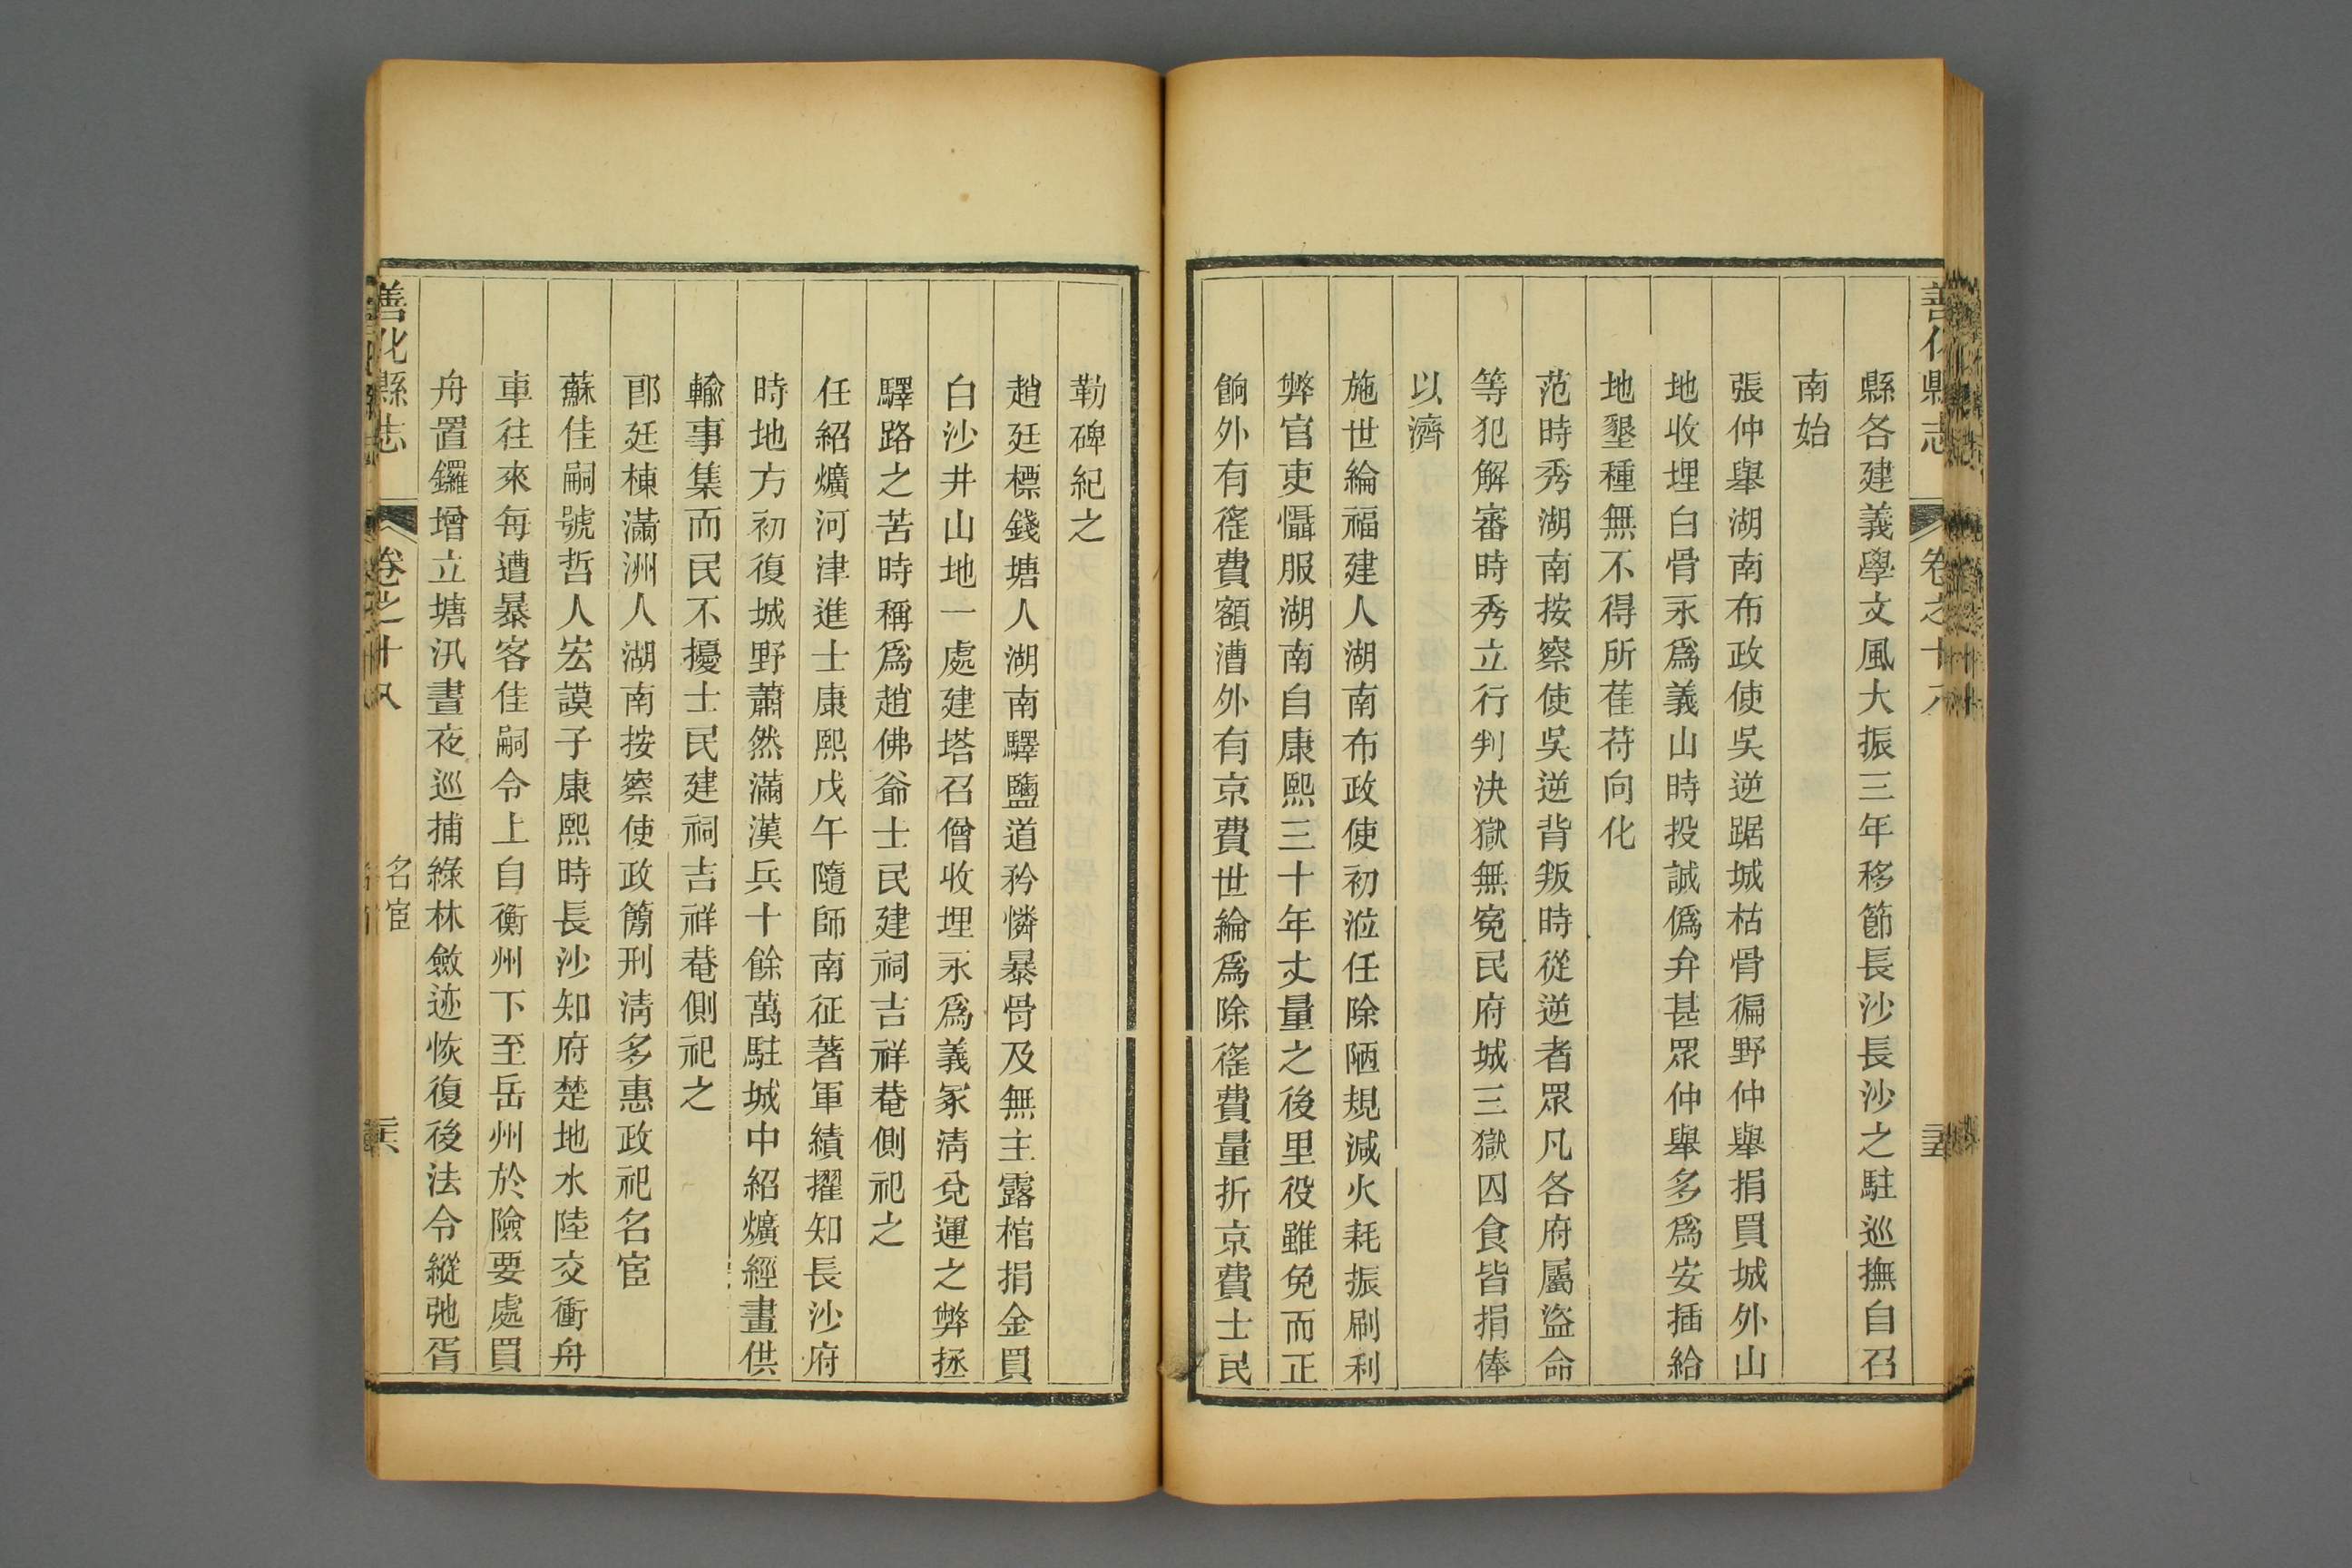 善化縣志 卷之十八
縣各建義學文風大振三年移節長沙長沙之駐巡撫自召
南始
張仲舉湖南布政使吳逆踞城枯骨徧野仲舉捐買城外山
地收埋白骨永爲義山時投誠僞弁甚眾仲舉多爲安插給
地墾種無不得所萑苻向化
范時秀湖南按察使吳逆背叛時從逆者眾凡各府屬盜命
等犯解審時秀立行判決獄無寃民府城三獄囚食皆捐俸
以濟
施世綸福建人湖南布政使初涖任除陋規減火耗振刷利
弊官吏懾服湖南自康熙三十年丈量之後里役雖免而正
餉外有徭費額漕外有京費世綸爲除徭費量折京費士民
勒碑紀之
趙廷標錢塘人湖南驛鹽道矜憐暴骨及無主露棺捐金買
白沙井山地一處建塔召僧收埋永爲義冢淸兌運之弊拯
驛路之苦時稱爲趙佛爺士民建祠吉祥菴側祀之
任紹爌河津進士康熙戊午隨師南征著軍績擢知長沙府
時地方初復城野蕭然滿漢兵十餘萬駐城中紹爌經畫供
輸事集而民不擾士民建祠吉祥菴側祀之
郎廷棟滿洲人湖南按察使政簡刑淸多惠政祀名宦
蘇佳嗣號哲人宏謨子康熙時長沙知府楚地水陸交衝舟
車往來每遭暴客佳嗣令上自衡州下至岳州於險要處買
舟置鑼增立塘汛晝夜巡捕綠林斂迹恢復後法令縱弛胥
善化縣志 卷之十八 名宦